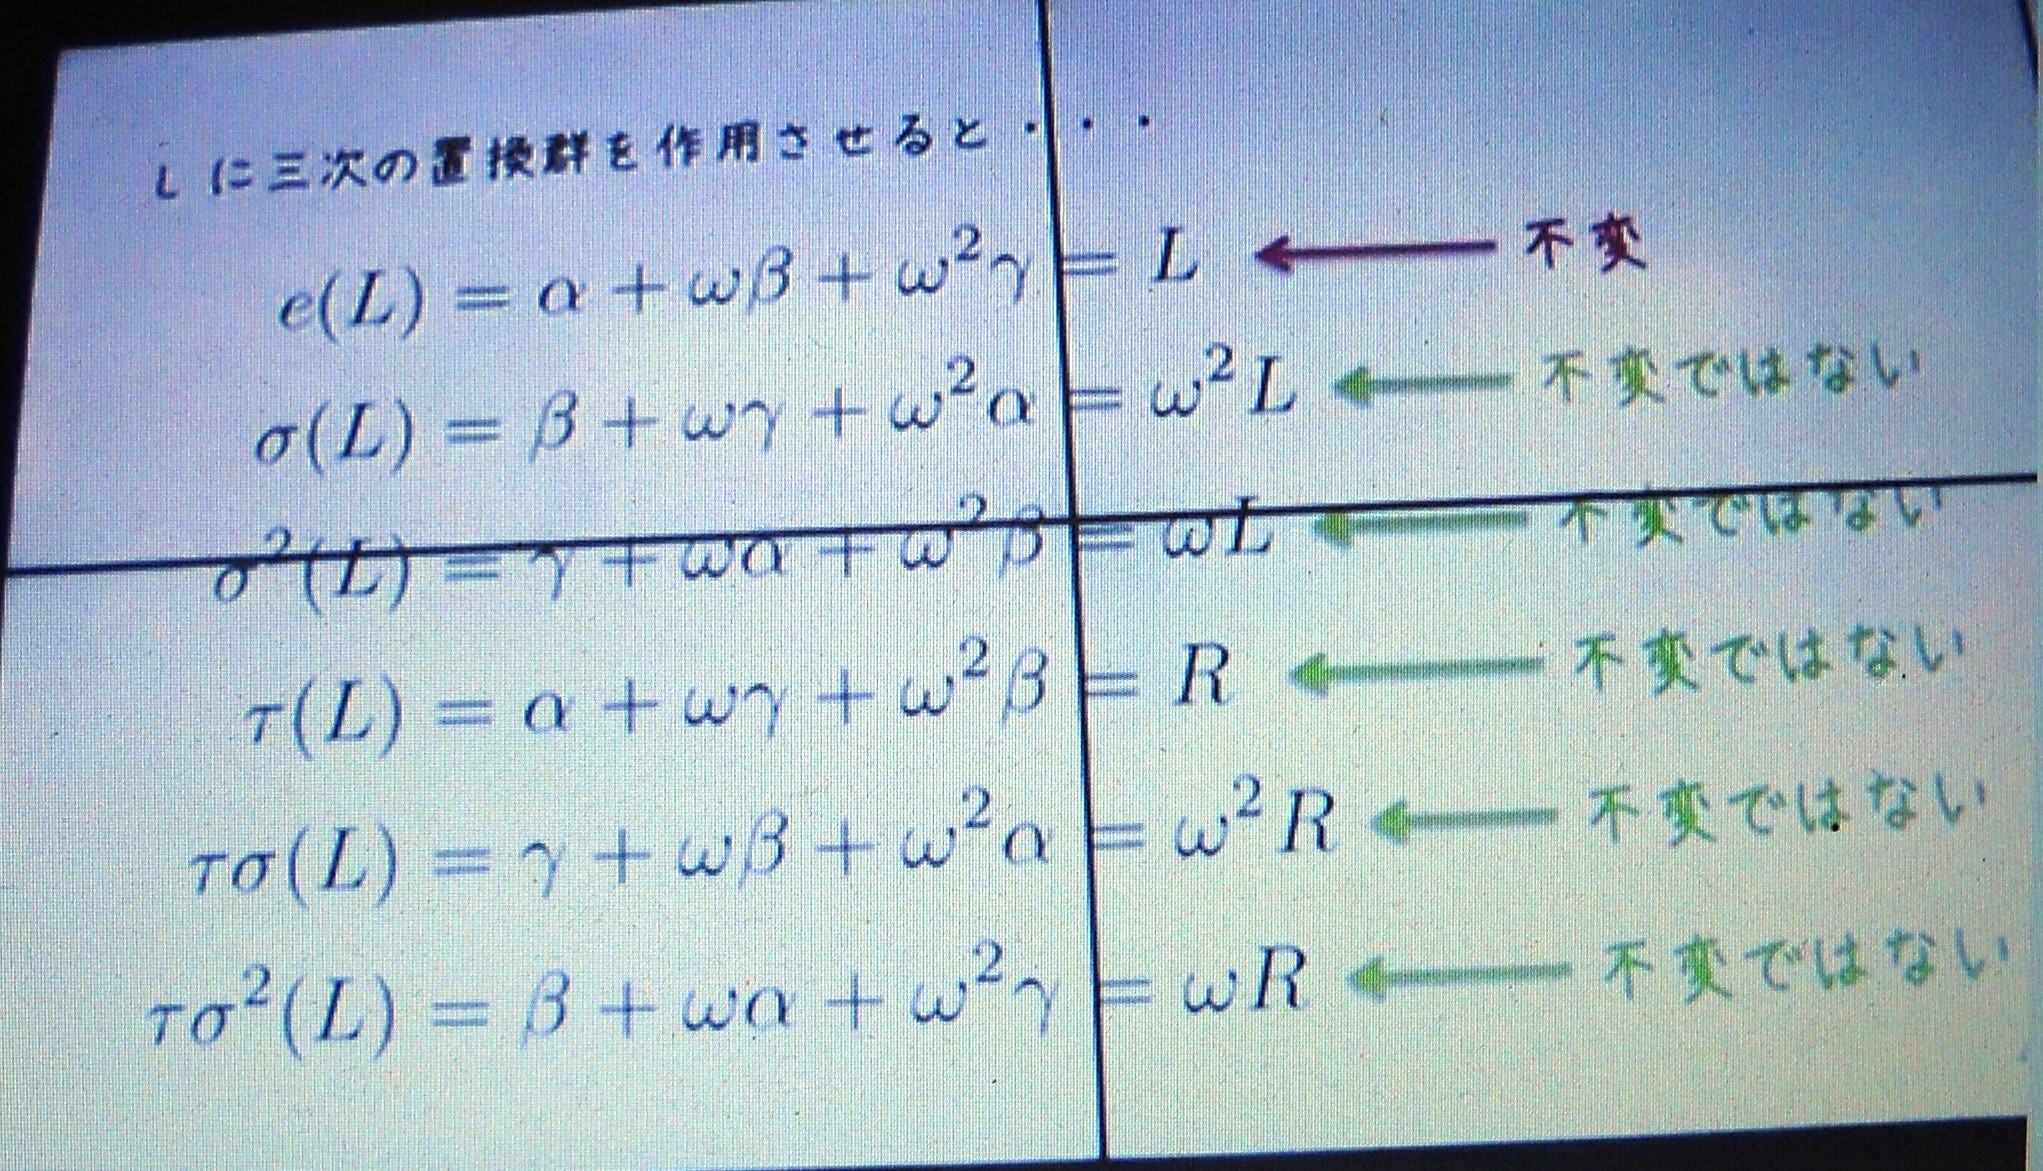 Lに三次の置換群を作用させると・・・
e(L) = α + ωβ + ω²γ = L ← 不変
σ(L) = β + ωγ + ω²α = ω²L ← 不変ではない
σ²(L) = γ + ωα + ω²β = ωL ← 不変ではない
τ(L) = α + ωγ + ω²β = R ← 不変ではない
τσ(L) = γ + ωβ + ω²α = ω²R ← 不変ではない
τσ²(L) = β + ωα + ω²γ = ωR ← 不変ではない